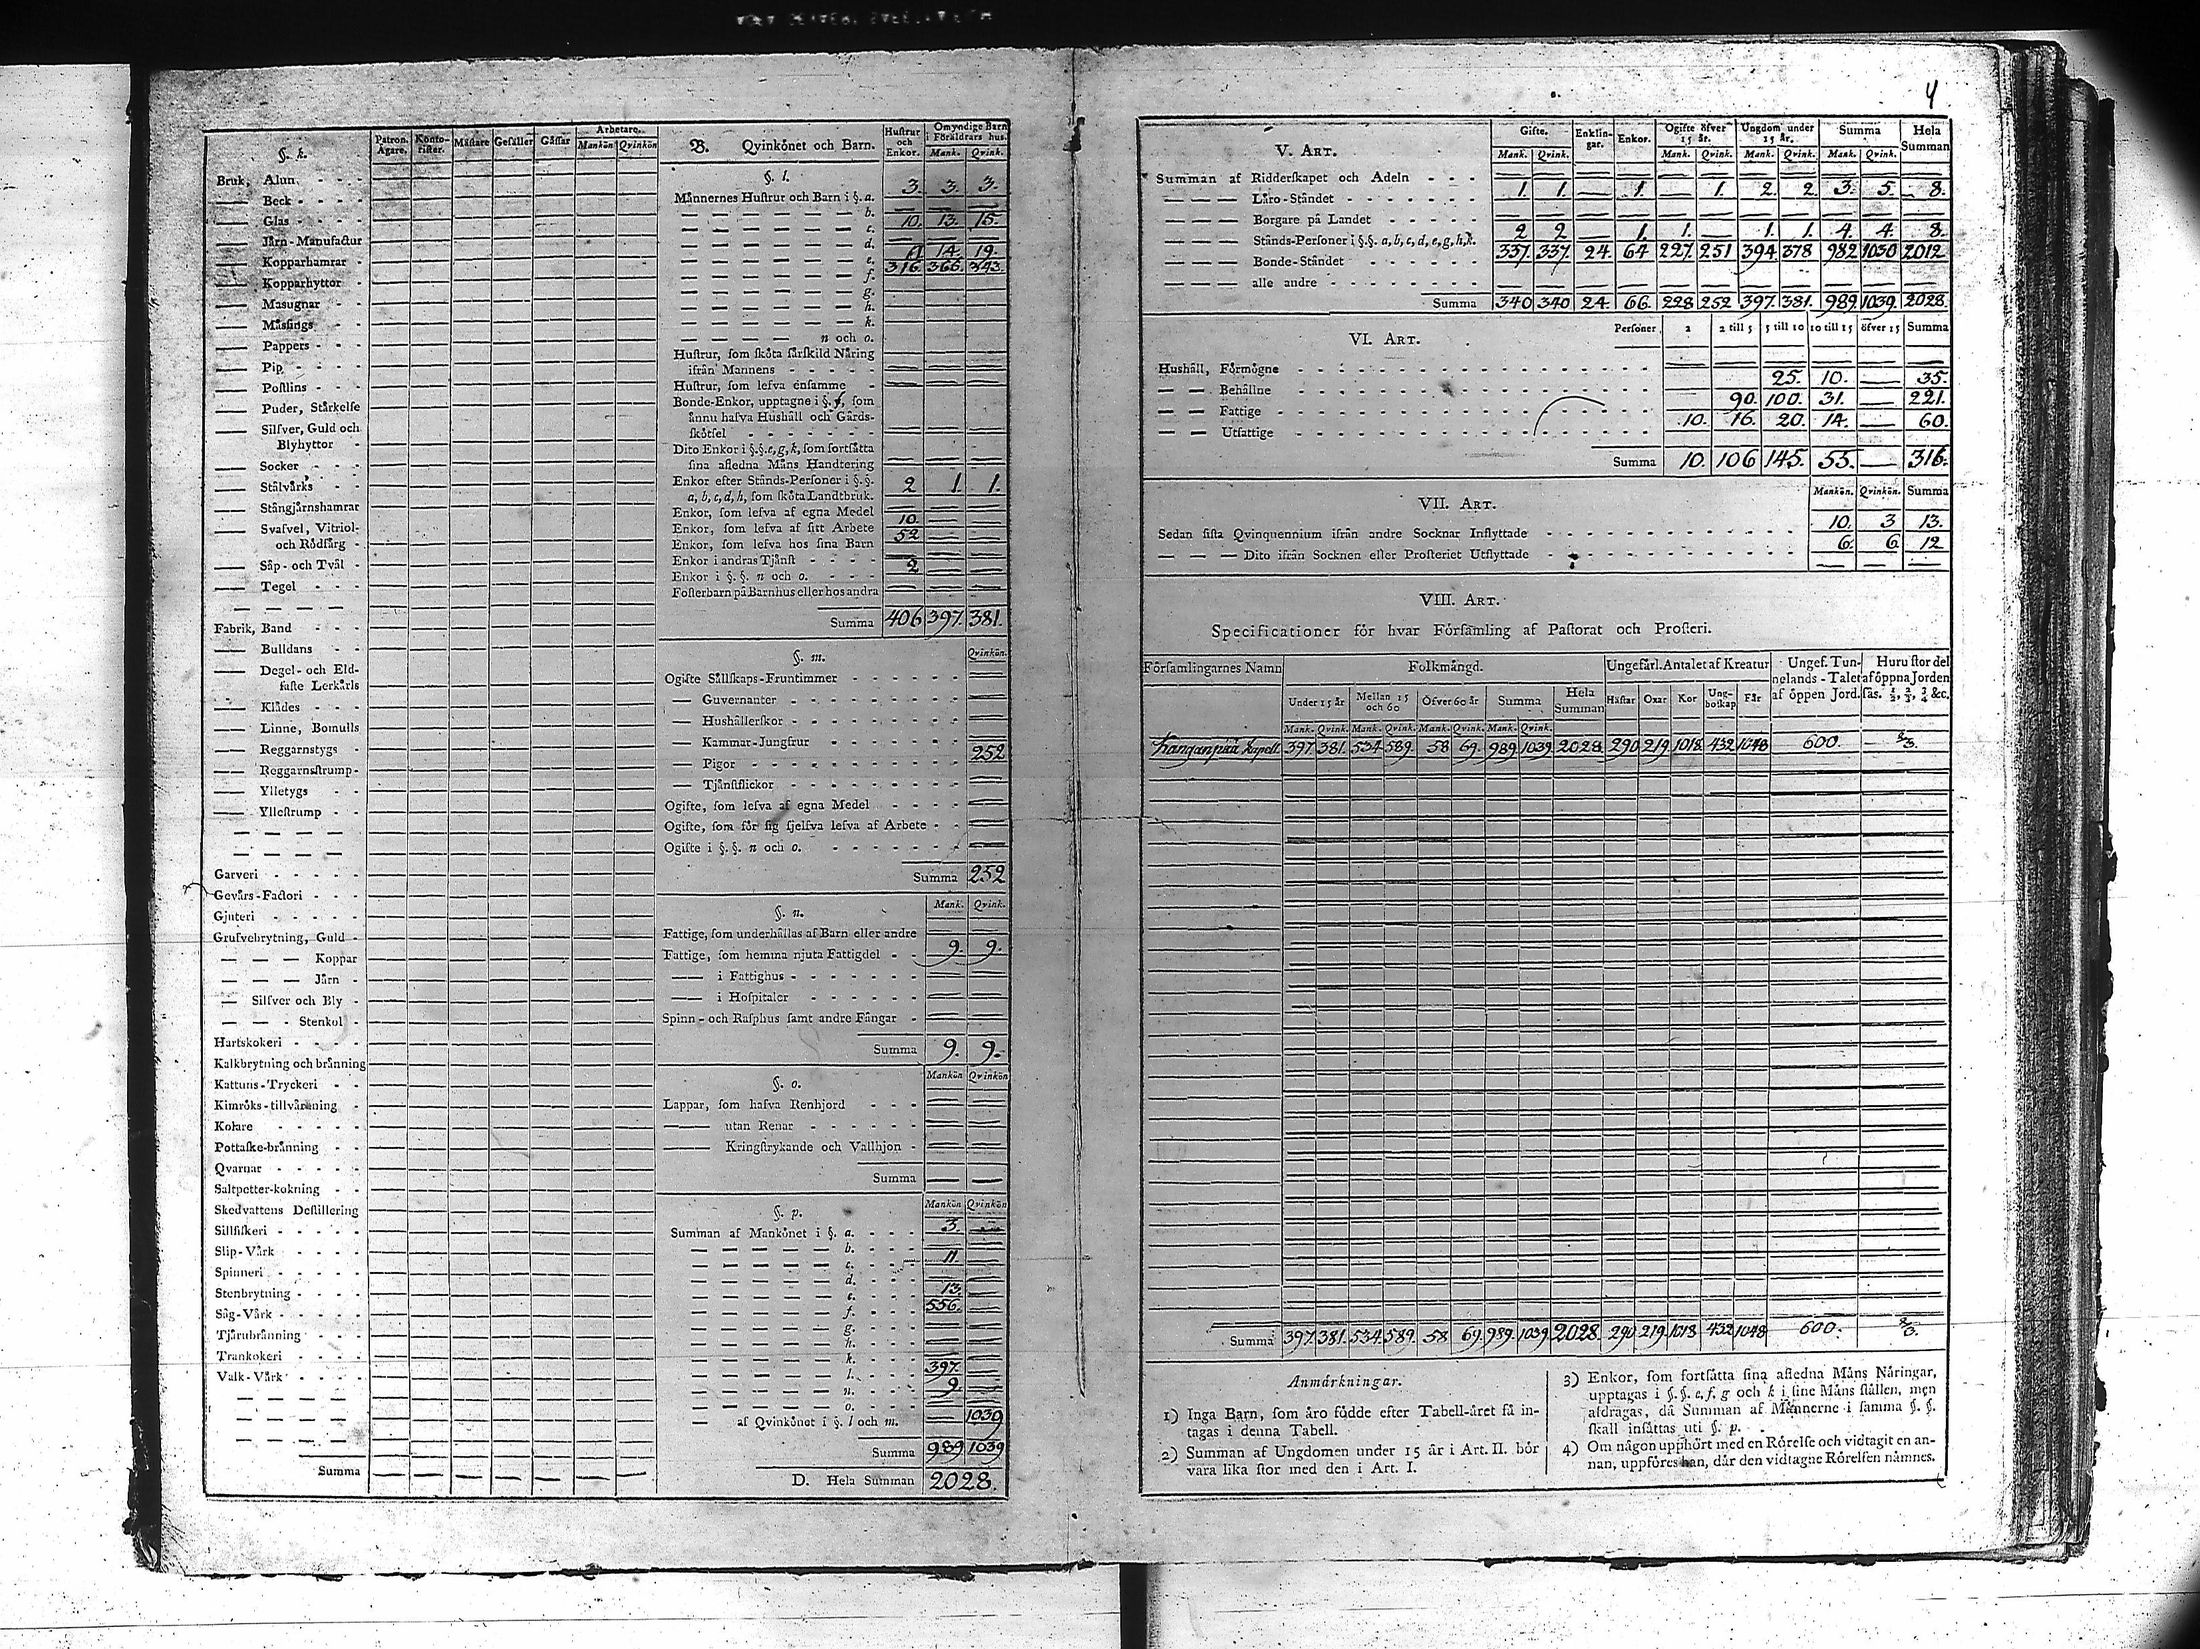 4
§. k.
Patron. Ägare. Konto-rister. Mästare Gesäller Gåssar Arbetare. Mankön Qvinkön
Bruk, Alun - - -
— Beck - - - -
— Glas - - - -
— Järn-Manufactur
— Kopparhamrar -
— Kopparhyttor -
— Masugnar - -
— Mässings - -
— Pappers - - -
— Pip - - - -
— Postlins - - -
— Puder, Stårkelse
— Silfver, Guld och
Blyhyttor -
— Socker - - -
— Stålvårks - -
— Stångjårnshamrar
— Svafvel, Vitriol-
och Rödfärg -
— Såp- och Tvål -
— Tegel - - -
— — — — —
Fabrik, Band - - -
— Bulldans - -
— Degel- och Eld-
faste Lerkårls
— Klådes - - -
— Linne, Bomulls
— Reggarnstygs -
— Reggarnsstrump-
— Ylletygs - -
— Yllestrump - -
— — — — —
— — — — —
Garveri - - - - -
Gevårs-Factori - - -
Gjuteri - - - - -
Grufvebrytning, Guld -
— — — Koppar
— — — Jårn -
— Silfver och Bly -
— — - Stenkol -
Hartskokeri - - - -
Kalkbrytning och brånning
Kattuns-Tryckeri - -
Kimröks-tillvårkning -
Kolare - - - - -
Pottaske-brånning - -
Qvarnar - - - - -
Saltpetter-kokning - -
Skedvattens Destillering
Sillfiskeri - - - - -
Slip-Vårk - - - -
Spinneri - - - - -
Stenbrytning - - - -
Såg-Vårk - - - - -
Tjårubrånning - - -
Trankokeri - - - -
Valk-Vårk - - - -
— — — — —
— — — — —
— — — — —
Summa — — — — — — —
B. Qvinkönet och Barn. Hustrur och Enkor. Omyndige Barn i Föräldrars hus. Mank. Qvink.
§. l.
Månnernes Hustrur och Barn i §. a. 3. 3. 3.
— — — — — b.
— — — — — c. 10. 13. 15.
— — — — — d.
— — — — — e. 11 14. 19.
— — — — — f. 316. 366. 343.
— — — — — g.
— — — — — h.
— — — — — k.
— — — — n och o.
Hustrur, som sköta sårskild Nåring
ifrån Mannens - - - - -
Hustrur, som lefva ensamme -
Bonde-Enkor, upptagne i §. f, som
ånnu hafva Hushåll och Gårds-
skötsel - - - - - - -
Dito Enkor i §.§. e, g, k, som fortsåtta
sina afledna Måns Handtering
Enkor efter Stånds-Personer i §.§.
a, b, c, d, h, som sköta Landtbruk. 2 1. 1.
Enkor, som lefva af egna Medel
Enkor, som lefva af sitt Arbete 10.
Enkor, som lefva hos sina Barn 52
Enkor i andras Tjånst - - - -
Enkor i §.§. n och o. - - - 2
Fosterbarn på Barnhus eller hos andra
Summa 406 397. 381.
§. m. Qvinkön.
Ogifte Sållskaps-Fruntimmer - - - - - -
— Guvernanter - - - - - - - -
— Hushållerskor - - - - - - - -
— Kammar-Jungfrur - - - - - -
— Pigor - - - - - - - - - 252
— Tjånstflickor - - - - - - - -
Ogifte, som lefva af egna Medel - - - -
Ogifte, som för sig sjelfva lefva af Arbete - -
Ogifte i §.§. n och o. - - - - - - -
Summa 252
§. n. Mank. Qvink.
Fattige, som underhållas af Barn eller andre
Fattige, som hemma njuta Fattigdel - - 9. 9.
— i Fattighus - - - - - - -
— i Hospitaler - - - - - -
Spinn- och Rasphus samt andre Fångar -
Summa 9. 9.
§. o. Mankön Qvinkön
Lappar, som hafva Renhjord - - -
— utan Renar - - - - - -
— Kringstrykande och Vallhjon -
Summa — —
§. p. Mankön Qvinkön
Summan af Mankönet i §. a. - - - 3.
— — — — — b. - - -
— — — — — c. - - - 11.
— — — — — d. - - -
— — — — — e. - - - 13.
— — — — — f. - - - 556.
— — — — — g. - - -
— — — — — h. - - -
— — — — — k. - - -
— — — — — l. - - - 397.
— — — — — n. - - - 9.
— — — — — o. - - -
— af Qvinkönet i §. l och m. — 1039
Summa 989 1039
D. Hela Summan 2028.
V. Art. Gifte. Mank. Qvink. Enklingar. Enkor. Ogifte öfver 15 år. Mank. Qvink. Ungdom under 15 år. Mank. Qvink. Summa Mank. Qvink. Hela Summan
Summan af Ridderskapet och Adeln - - -
— — — Låro-Ståndet - - - - - - 1. 1. — 1. 1. 2. 2. 3. 5. 8.
— — — Borgare på Landet - - - - -
— — — Stånds-Personer i §.§. a, b, c, d, e, g, h, k. 2 2 — 1. 1. — 1. 1. 4. 4. 8.
— — — Bonde-Ståndet - - - - - 337. 337. 24. 64 227. 251 394. 378 982 1030 2012
— — — alle andre - - - - - - -
Summa 340 340 24. 66. 228 252 397. 381. 989. 1039. 2028.
VI. Art. Personer 2 2 till 5 5 till 10 10 till 15 öfver 15 Summa
Hushåll, Förmögne - - - - - - - -
— — Behållne - - - - - - - - 25. 10. — 35.
— — Fattige - - - - - - - - 90. 100. 31. — 221.
— — Utfattige - - - - - - - - 10. 16. 20. 14. — 60.
Summa 10. 106 145. 55. — 316.
VII. Art. Mankön. Qvinkön. Summa
Sedan sista Qvinquennium ifrån andre Socknar Inflyttade - - - - 10. 3 13.
— — — Dito ifrån Socknen eller Prosteriet Utflyttade - - - - 6. 6 12
VIII. Art.
Specificationer för hvar Församling af Pastorat och Prosteri.
Församlingarnes Namn Folkmängd. Ungefärl. Antalet af Kreatur Ungef. Tunnelands-Talet af öppen Jord. Huru stor del af öppna Jorden sås. 1/2, 2/3, 3/4 &c.
Under 15 år Mellan 15 och 60 Öfver 60 år Summa Hela Summan Håstar Oxar Kor Ungboskap Får
Mank. Qvink. Mank. Qvink. Mank. Qvink. Mank. Qvink.
Kanganpää Kapell. 397. 381. 534. 589. 58 69. 989. 1039. 2028. 290 219. 1018. 432 1048 600. 2/3.
Summa 397. 381. 534. 589. 58. 69. 989. 1039. 2028. 290 219. 1018 432 1048 600. 2/3.
Anmårkningar.
1) Inga Barn, som åro födde efter Tabell-året få in-
tagas i denna Tabell.
2) Summan af Ungdomen under 15 år i Art. II. bör
vara lika stor med den i Art. I.
3) Enkor, som fortsåtta sina afledna Måns Nåringar,
upptagas i §.§. e, f, g och k i sine Måns stållen, men
afdragas, då Summan af Månnerne i samma §.§.
skall insåttas uti §. p.
4) Om någon upphört med en Rörelse och vidtagit en an-
nan, uppföres han, dår den vidtagne Rörelsen nåmnes.